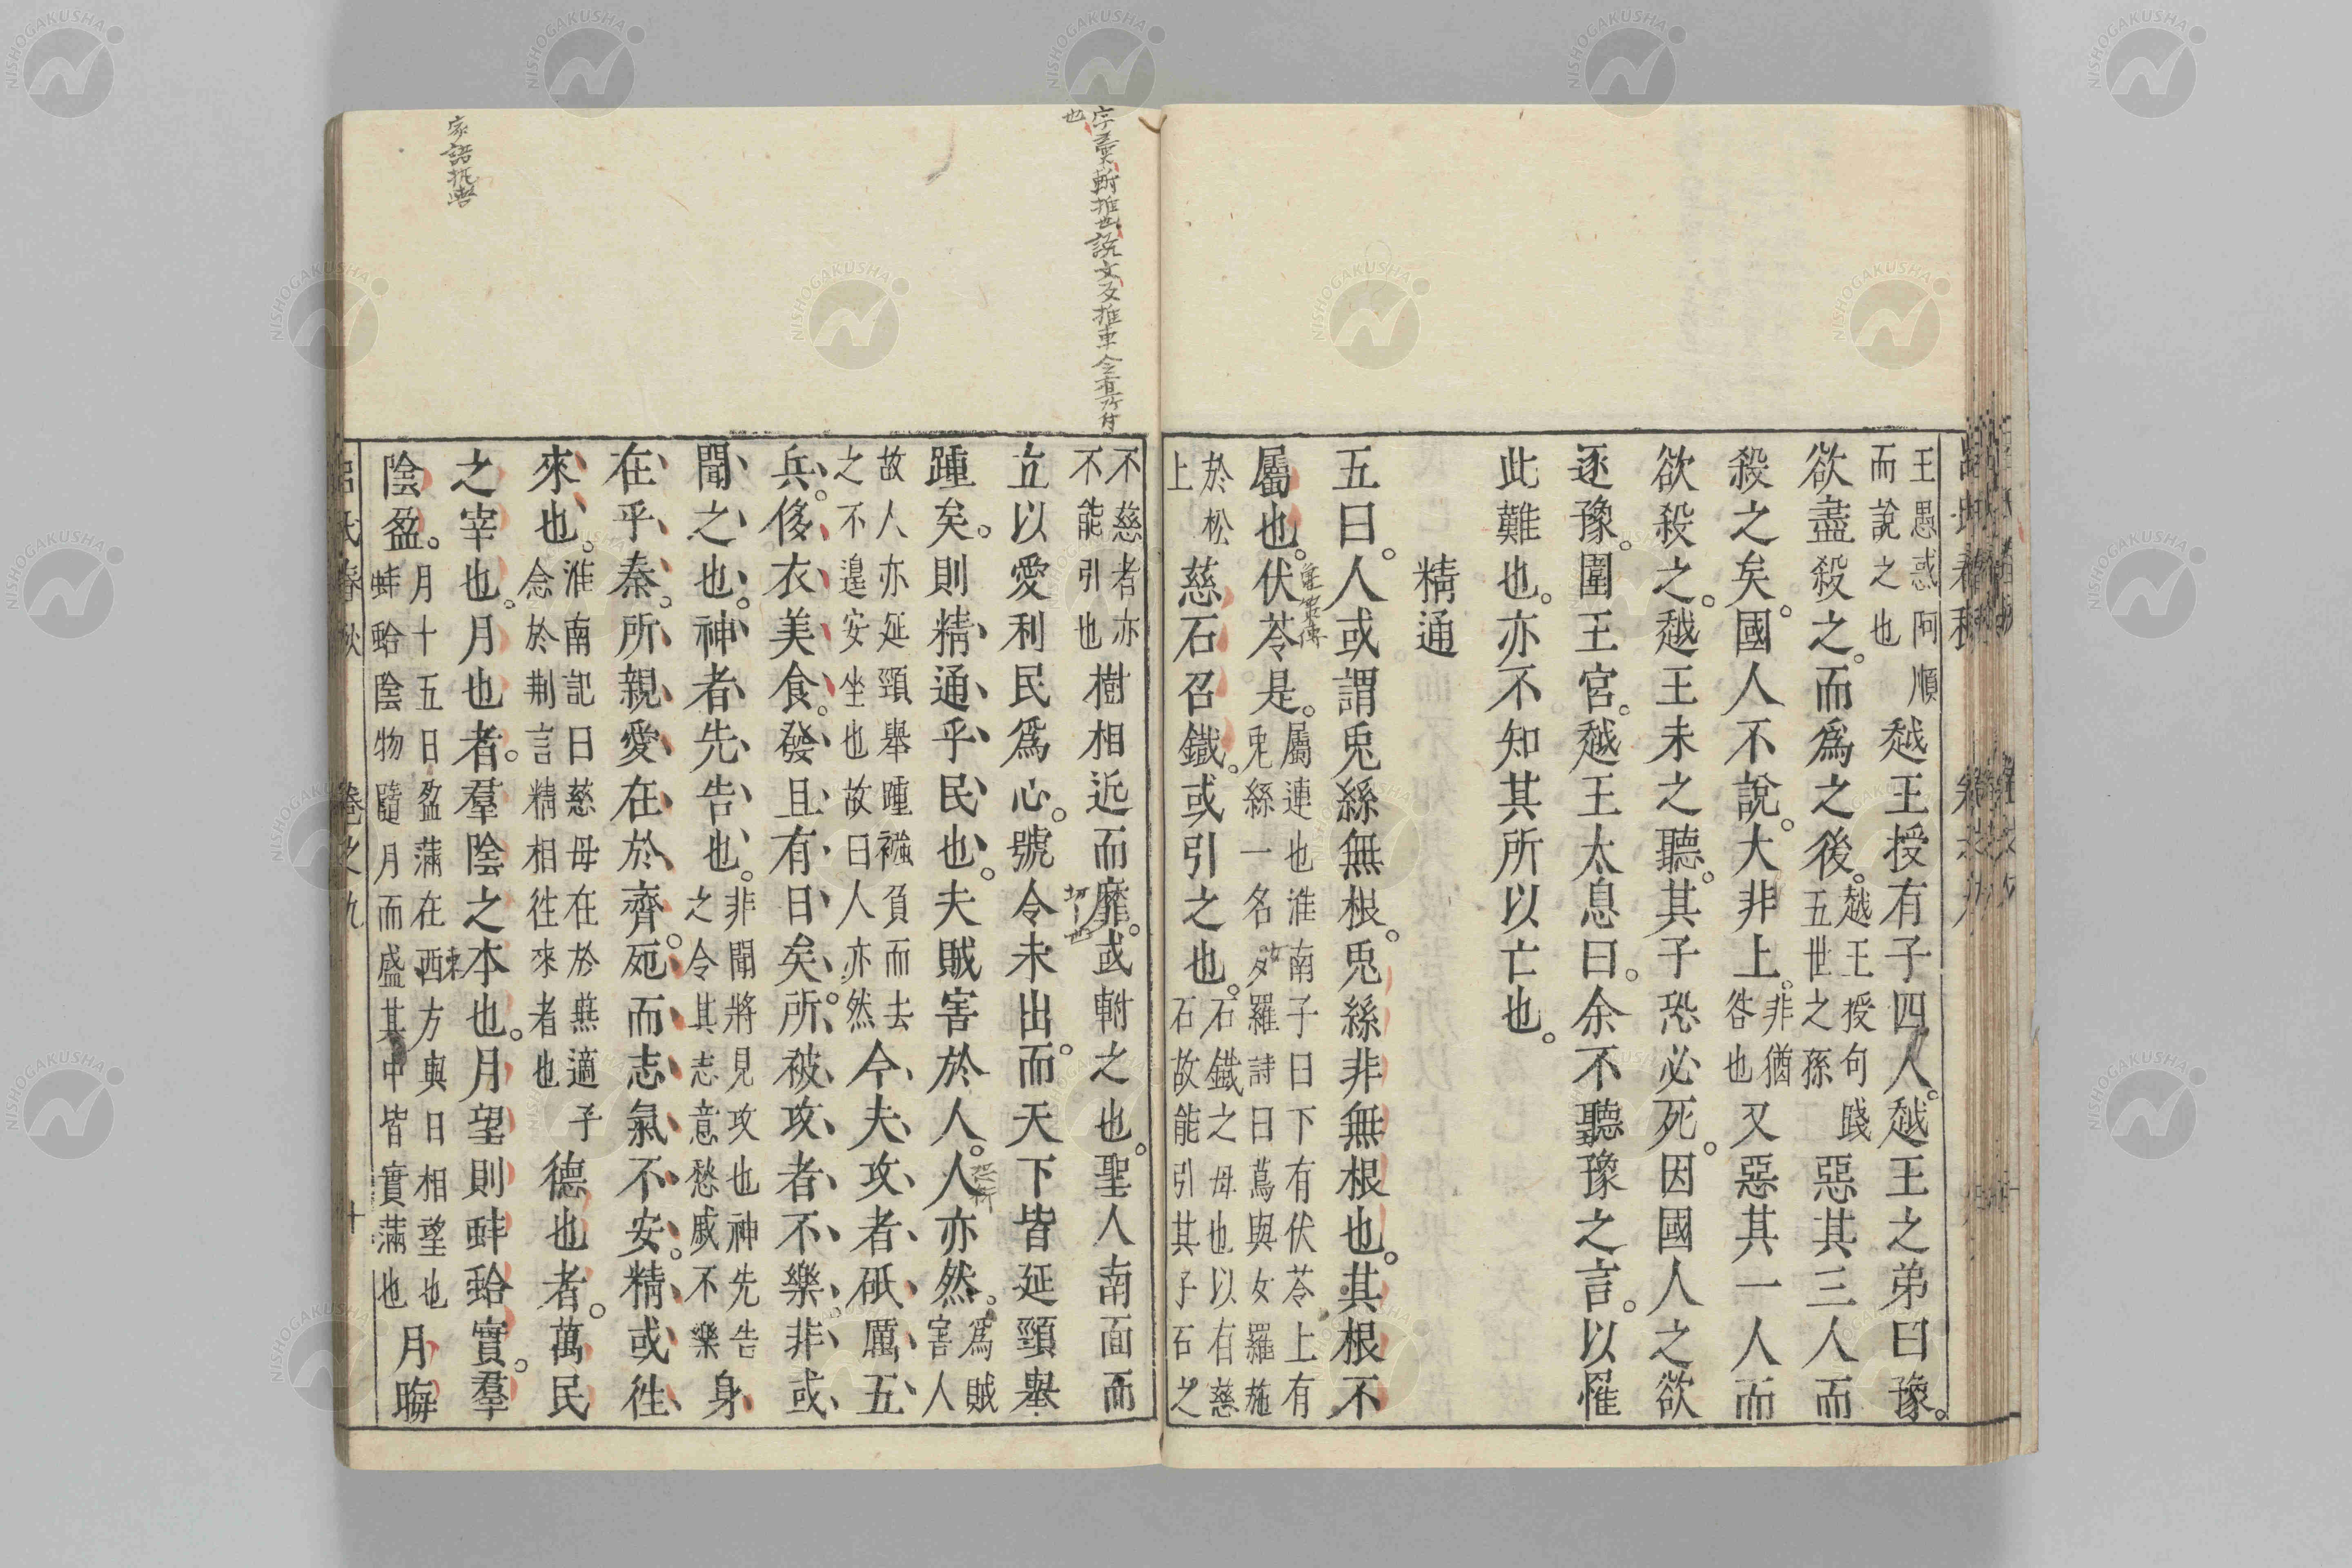 王愚惑阿順
而說之也
越王授有子四人。越王之弟曰豫。
欲盡殺之。而爲之後。
越王授句踐
五世之孫
惡其三人而
殺之矣。國人不說。大非上。
非猶
咎也
又惡其一人而
欲殺之。越王未之聽。其子恐必死。因國人之欲
逐豫。圍王宮。越王太息曰。余不聽豫之言。以罹
此難也。亦不知其所以亡也。
精通
五曰。人或謂兎絲無根。兎絲非無根也。其根不
屬也。伏苓是。
屬連也淮南子曰下有伏苓上有
兎絲一名女羅詩曰蔦與女羅施
於松
上
慈石召鐵。或引之也。
石鐵之母也以有慈
石故能引其子石之
不慈者亦
不能引也
樹相近而靡。或軵之也。聖人南面而
立以愛利民爲心。號令未出。而天下皆延頸舉
踵矣。則精通乎民也。夫賊害於人。人亦然。
爲賊
害人
故人亦延頸舉踵襁負而去
之不遑安坐也故曰人亦然
今夫攻者砥厲五
兵。侈衣美食。發且有日矣。所被攻者不樂非或
聞之也。神者先告也。
非聞將見攻也神先告
之令其志意愁戚不樂
身
在乎秦。所親愛在於齊。死而志氣不安。精或往
來也。
淮南記曰慈母在於燕適子
念於荆言精相往來者也
德也者。萬民
之宰也。月也者。羣陰之本也。月望則蚌蛤實。羣
陰盈。
月十五日盈滿在西方與日相望也
蚌蛤陰物隨月而盛其中皆實滿也
月晦
呂氏春秋
卷之九
十